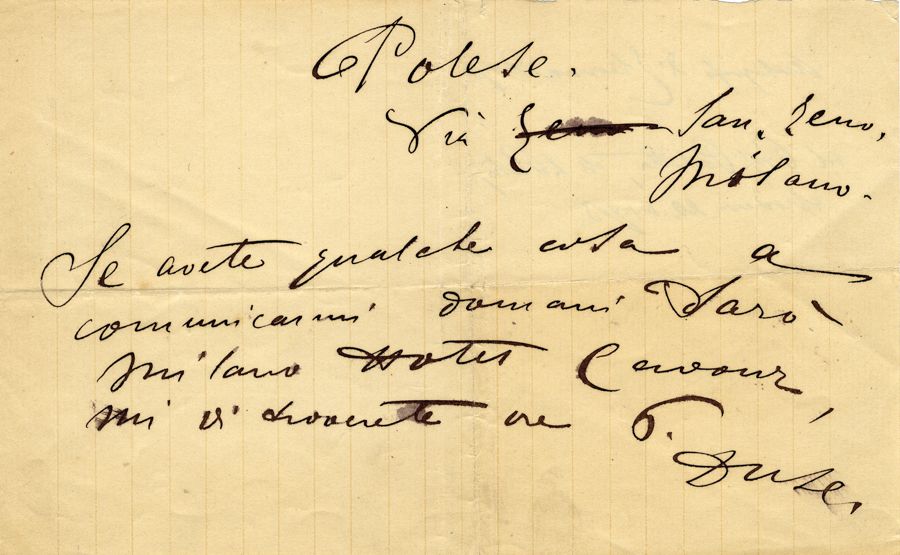 Polese.
Via Zeno San. Zeno,
Milano.
Se avete qualche cosa a
comunicarmi domani Sarò
Milano Hotel Cavour,
mi vi troverete ore 6.
Duse.